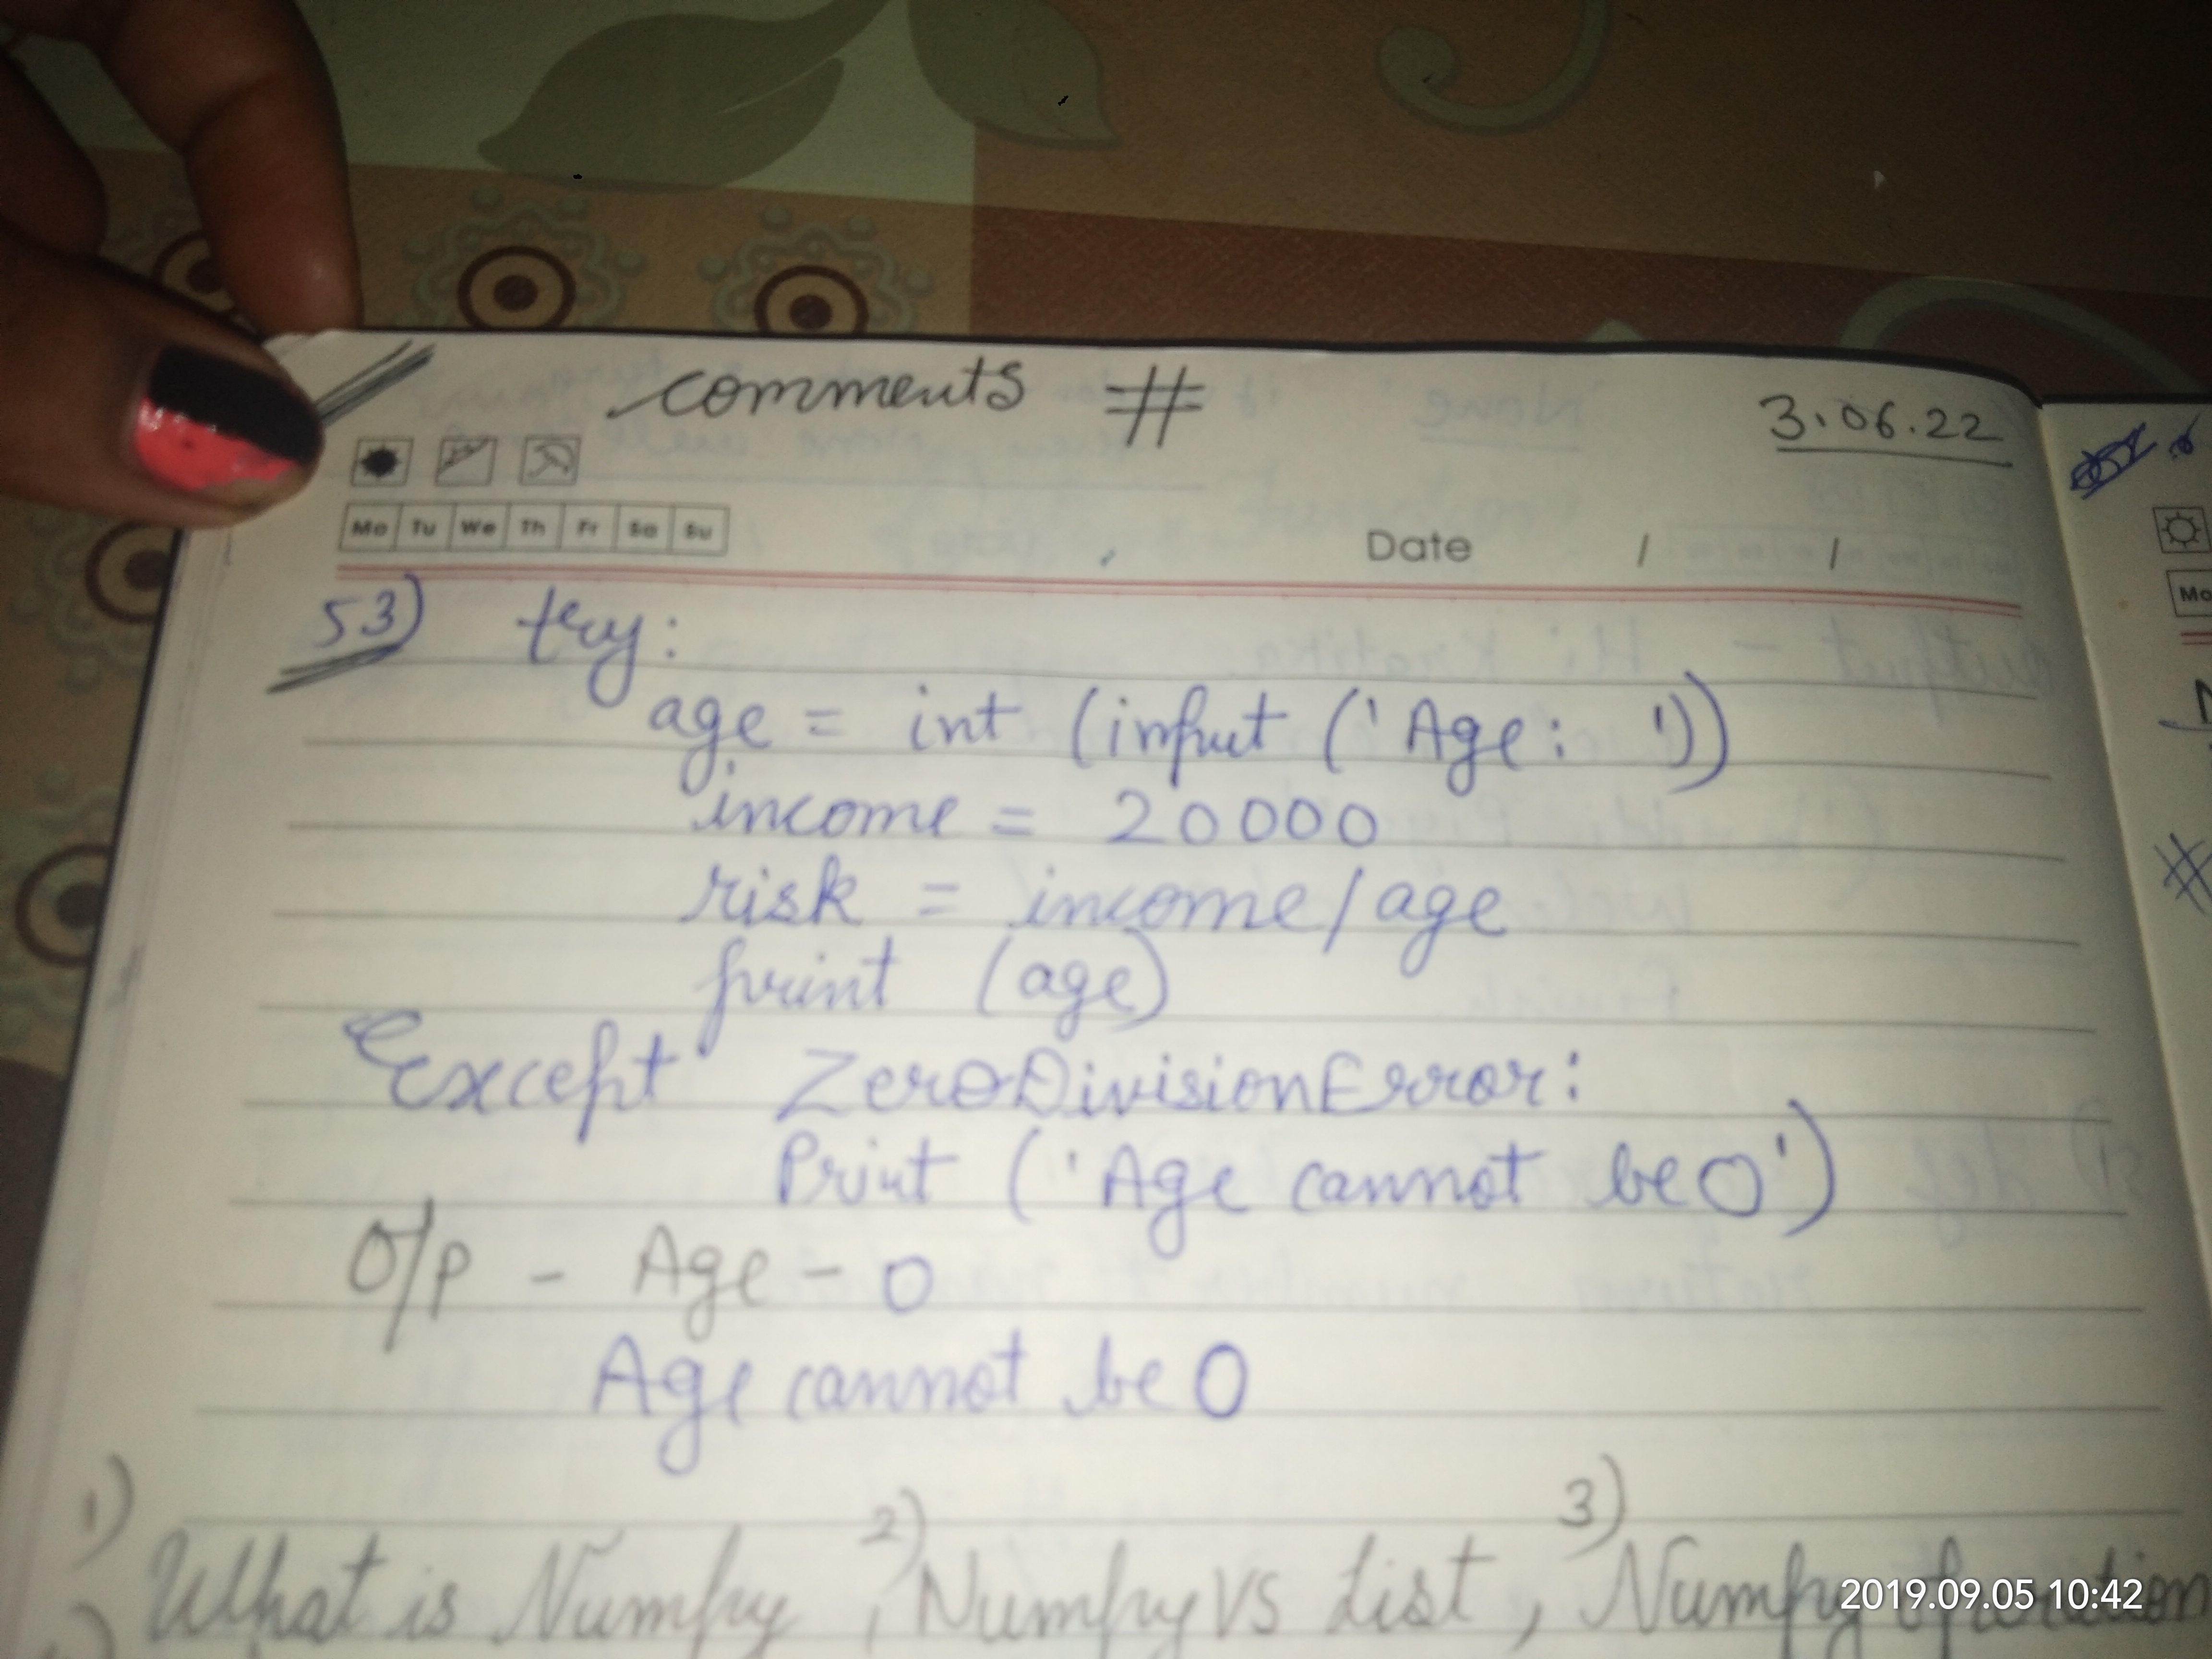 comments #
3.06.22
Mo Tu We Th Fr Sa Su
Date / /
53) try:
age = int (input ('Age: '))
income = 20000
risk = income/age
print (age)
Except ZeroDivisionError:
Print ('Age cannot be 0')
O/p - Age - 0
Age cannot be 0
1) What is Numpy, 2) Numpy vs List, 3) Numpy
Mo
2019.09.05 10:42